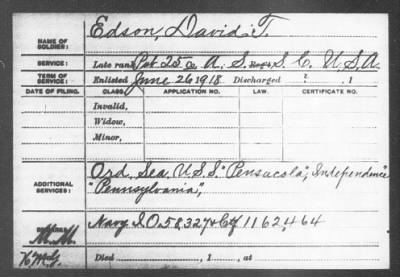 NAME OF SOLDIER: Edson, David T.
SERVICE: Late rank Pvt 25 Co A, S. Regt S. C. U.S.A.
TERM OF SERVICE: Enlisted June 26 1918. Discharged , 1
DATE OF FILING. CLASS. APPLICATION NO. LAW. CERTIFICATE NO.
Invalid,
Widow,
Minor,
Ord. Sea, U.S.S. "Pensacola", Independence
ADDITIONAL SERVICES: "Pennsylvania",
REMARKS: Navy I.O. 58,327 + Ctf 1162,464
Died , 1 , at